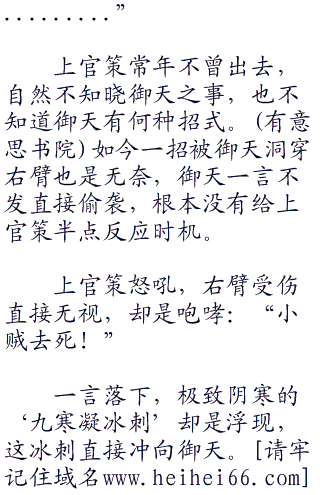 . . . . . . . . .”
上官策常年不曾出去，
自然不知晓御天之事，也不
知道御天有何种招式。(有意
思书院)如今一招被御天洞穿
右臂也是无奈，御天一言不
发直接偷袭，根本没有给上
官策半点反应时机。
上官策怒吼，右臂受伤
直接无视，却是咆哮：“小
贼去死！”
一言落下，极致阴寒的
‘九寒凝冰刺’却是浮现，
这冰刺直接冲向御天。[请牢
记住域名www.heihei66.com]